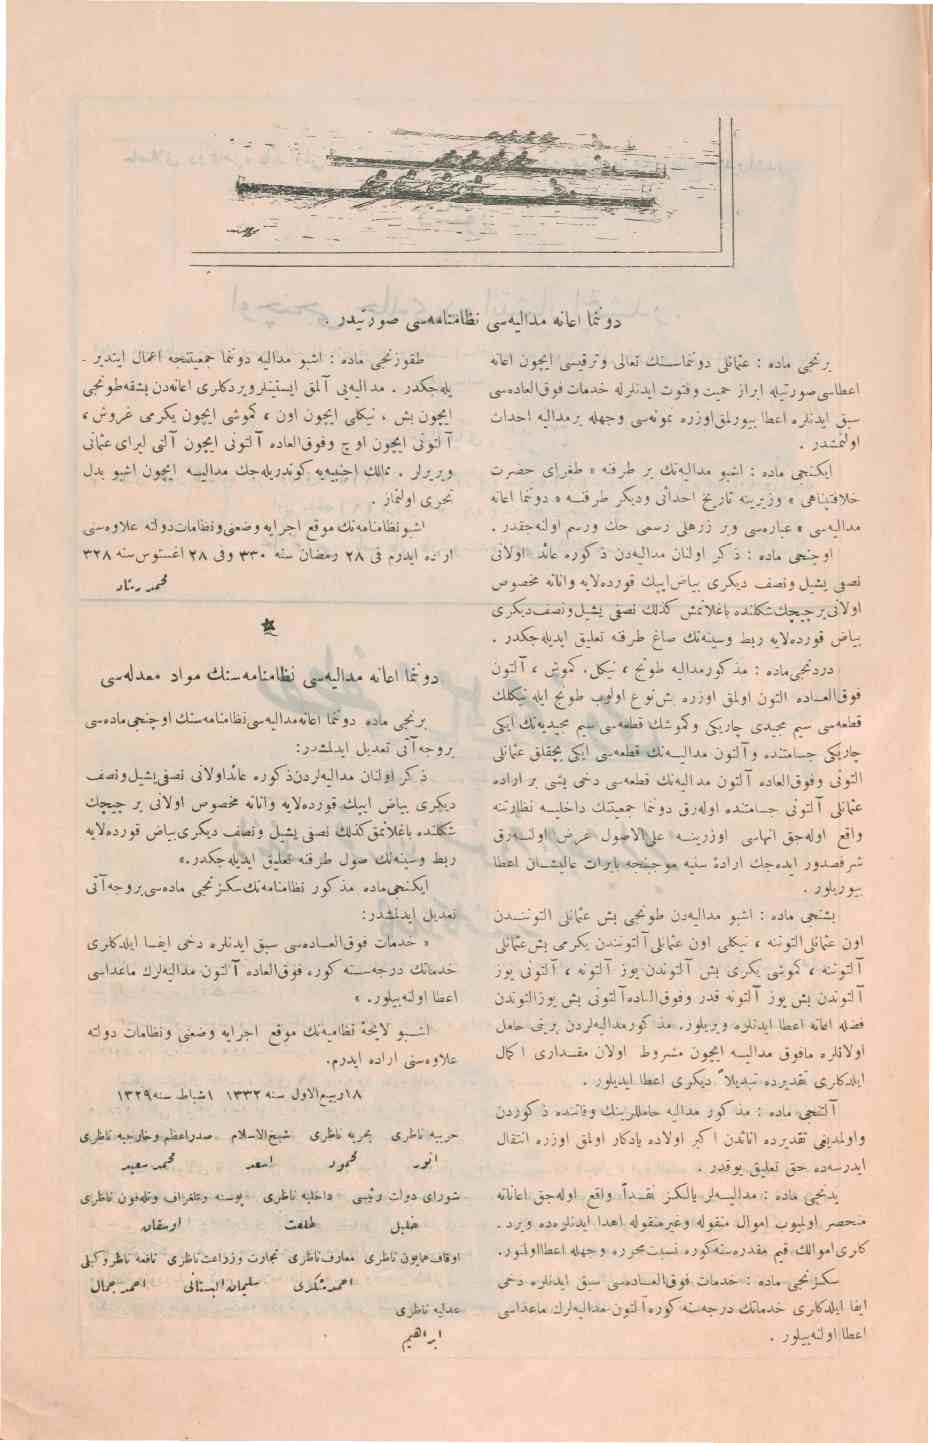 دونتما اعانه مدالیه‌سی نظامنامه‌سی صورتیدر .
برنجی ماده : عثمانلی دونتماسنك تعالی وترقیسی ایچون اعانه
اعطاسی صورتیله ابراز حمیت وفتوت ایدنلرله خدمات فوق‌العاده‌سی
سبق ایدنلره اعطا بیورلمق اوزره نمونه‌سی وجهله برمدالیه احداث
اولنمشدر .
ایکنجی ماده : اشبو مدالیه‌نك بر طرفنه « طغرای حضرت
خلافتپناهی » وزیرینه تاریخ احداثی ودیکر طرفنه « دونتما اعانه
مدالیه‌سی » عباره‌سی وبر زرهلی رسمی حك ورسم اولنه‌جقدر .
اوچنجی ماده : ذکر اولنان مدالیه‌دن ذکوره عائد اولانی
نصفی یشیل ونصف دیکری بیاض ایپك قوردەلایه واناثه مخصوص
اولانی بر چیچك شکلنده باغلانمش کذلك نصفی یشیل ونصف دیکری
بیاض قوردەلایه ربط وسینه‌نك صاغ طرفنه تعلیق ایدیله‌جکدر .
دردنجی ماده : مذکور مدالیه طونج ، نیکل، کموش ، آلتون
فوق‌العاده التون اولمق اوزره بش نوع اولوب طونج ایله نیکلك
قطعه‌سی سیم مجیدی چاریکی وکموشك قطعه‌سی سیم مجیدیه‌نك ایکی
چاریکی جسامتنده وآلتون مدالیه‌نك قطعه‌سی ایکی بچقلق عثمانلی
التونی وفوق‌العاده آلتون مدالیه‌نك قطعه‌سی دخی بشی بر اراده
عثمانلی آلتونی جسامتنده اوله‌رق دونتما جمعیتنك داخلیه نظارتنه
واقع اوله‌جق انهاسی اوزرینه علی‌الاصول عرض اولنه‌رق
شرفصدور ایده‌جك ارادهٔ سنیه موجبنجه بابرات عالیشان اعطا
بیوریلور .
بشنجی ماده : اشبو مدالیه‌دن طونجی بش عثمانلی التونندن
اون عثمانلی التوننه ، نیکلی اون عثمانلی آلتونندن یکرمی بش عثمانلی
آلتوننه ، کموشی یکرمی بش آلتوندن یوز آلتونه ، آلتونی یوز
آلتوندن بش یوز آلتونه قدر وفوق‌العاده آلتونی بش یوز التوندن
فضله اعانه اعطا ایدنلره ویریلور. مذکور مدالیه‌لردن برینی حامل
اولانلره مافوق مدالیه ایچون مشروط اولان مقداری اکمال
ایلدکاری تقدیرده تبدیلاً دیکری اعطا ایدیلور .
آلتنجی ماده : مذکور مدالیه حامللرینك وفاتنده ذکوردن
واولمدیغی تقدیرده اناثدن اکبر اولاده یادکار اولمق اوزره انتقال
ایدرسه‌ده حق تعلیق یوقدر .
یدنجی ماده : مدالیه‌لر یالکز نقداً واقع اوله‌جق اعاناته
منحصر اولمیوب اموال منقوله وغیرمنقوله اهدا ایدنلره‌ده ویرد .
کاری اموالك قیم مقدره‌سنه کوره نسبت محرره وجهله اعطا اولنور.
سکزنجی ماده : خدمات فوق‌العاده‌سی سبق ایدنلره دخی
ایفا ایلدکاری خدماتك درجه‌سنه کوره آلتون مدالیه‌لرك ماعداسی
اعطا اولنه‌بیلور .
طقوزنجی ماده : اشبو مدالیه دونتما جمعیتنجه اعمال ایتدیر ـ
یله‌جکدر . مدالیه‌یی آلمق ایستینلر ویردکلری اعانه‌دن بشقه طونجی
ایچون بش ، نیکلی ایچون اون ، کموشی ایچون یکرمی غروش ،
آلتونی ایچون اوچ وفوق‌العاده آلتونی ایچون آلتی لیرای عثمانی
ویریرلر . ممالك اجنبیه‌یه کوندریله‌جك مدالیه ایچون اشبو بدل
تحری اولنماز .
اشبو نظامنامه‌نك موقع اجرایه وضعنی ونظامات دولته علاوه‌سنی
اراده ایدرم فی ٢٨ رمضان سنه ٣٣٠ وفی ٢٨ اغستوس سنه ٣٢٨
محمد رشاد
دونتما اعانه مدالیه‌سی نظامنامه‌سنك مواد معدله‌سی
برنجی ماده دونتما اعانه مدالیه‌سی نظامنامه‌سنك اوچنجی ماده‌سی
بروجه آتی تعدیل ایدلمشدر:
ذکر اولنان مدالیه‌لردن ذکوره عائد اولانی نصفی یشیل ونصف
دیکری بیاض ایپك قوردەلایه واناثه مخصوص اولانی بر چیچك
شکلنده باغلانمق کذلك نصفی یشیل ونصف دیکری بیاض قوردەلایه
ربط وسینه‌نك صول طرفنه تعلیق ایدیله‌جکدر.»
ایکنجی ماده مذکور نظامنامه‌نك سکزنجی ماده‌سی بروجه آتی
تعدیل ایدلمشدر:
« خدمات فوق‌العاده‌سی سبق ایدنلره دخی ایفا ایلدکاری
خدماتك درجه‌سنه کوره فوق‌العاده آلتون مدالیه‌لرك ماعداسی
اعطا اولنه‌بیلور. »
اشبو لایحهٔ نظامیه‌نك موقع اجرایه وضعنی ونظامات دولته
علاوه‌سنی اراده ایدرم.
١٨ ربیع‌الاول سنه ١٣٣٢ ١ شباط سنه ١٣٢٩
حربیه ناظری بحریه ناظری شیخ‌الاسلام صدراعظم وخارجیه ناظری
انور محمود اسعد محمد سعید
شورای دولت رئیسی داخلیه ناظری پوسته وتلغراف وتله‌فون ناظری
خلیل طلعت اوسقان
اوقاف همایون ناظری معارف ناظری تجارت وزراعت ناظری نافعه ناظر وکیلی
احمد شکری سلیمان البستانی احمد جمال
عدلیه ناظری
ابراهیم